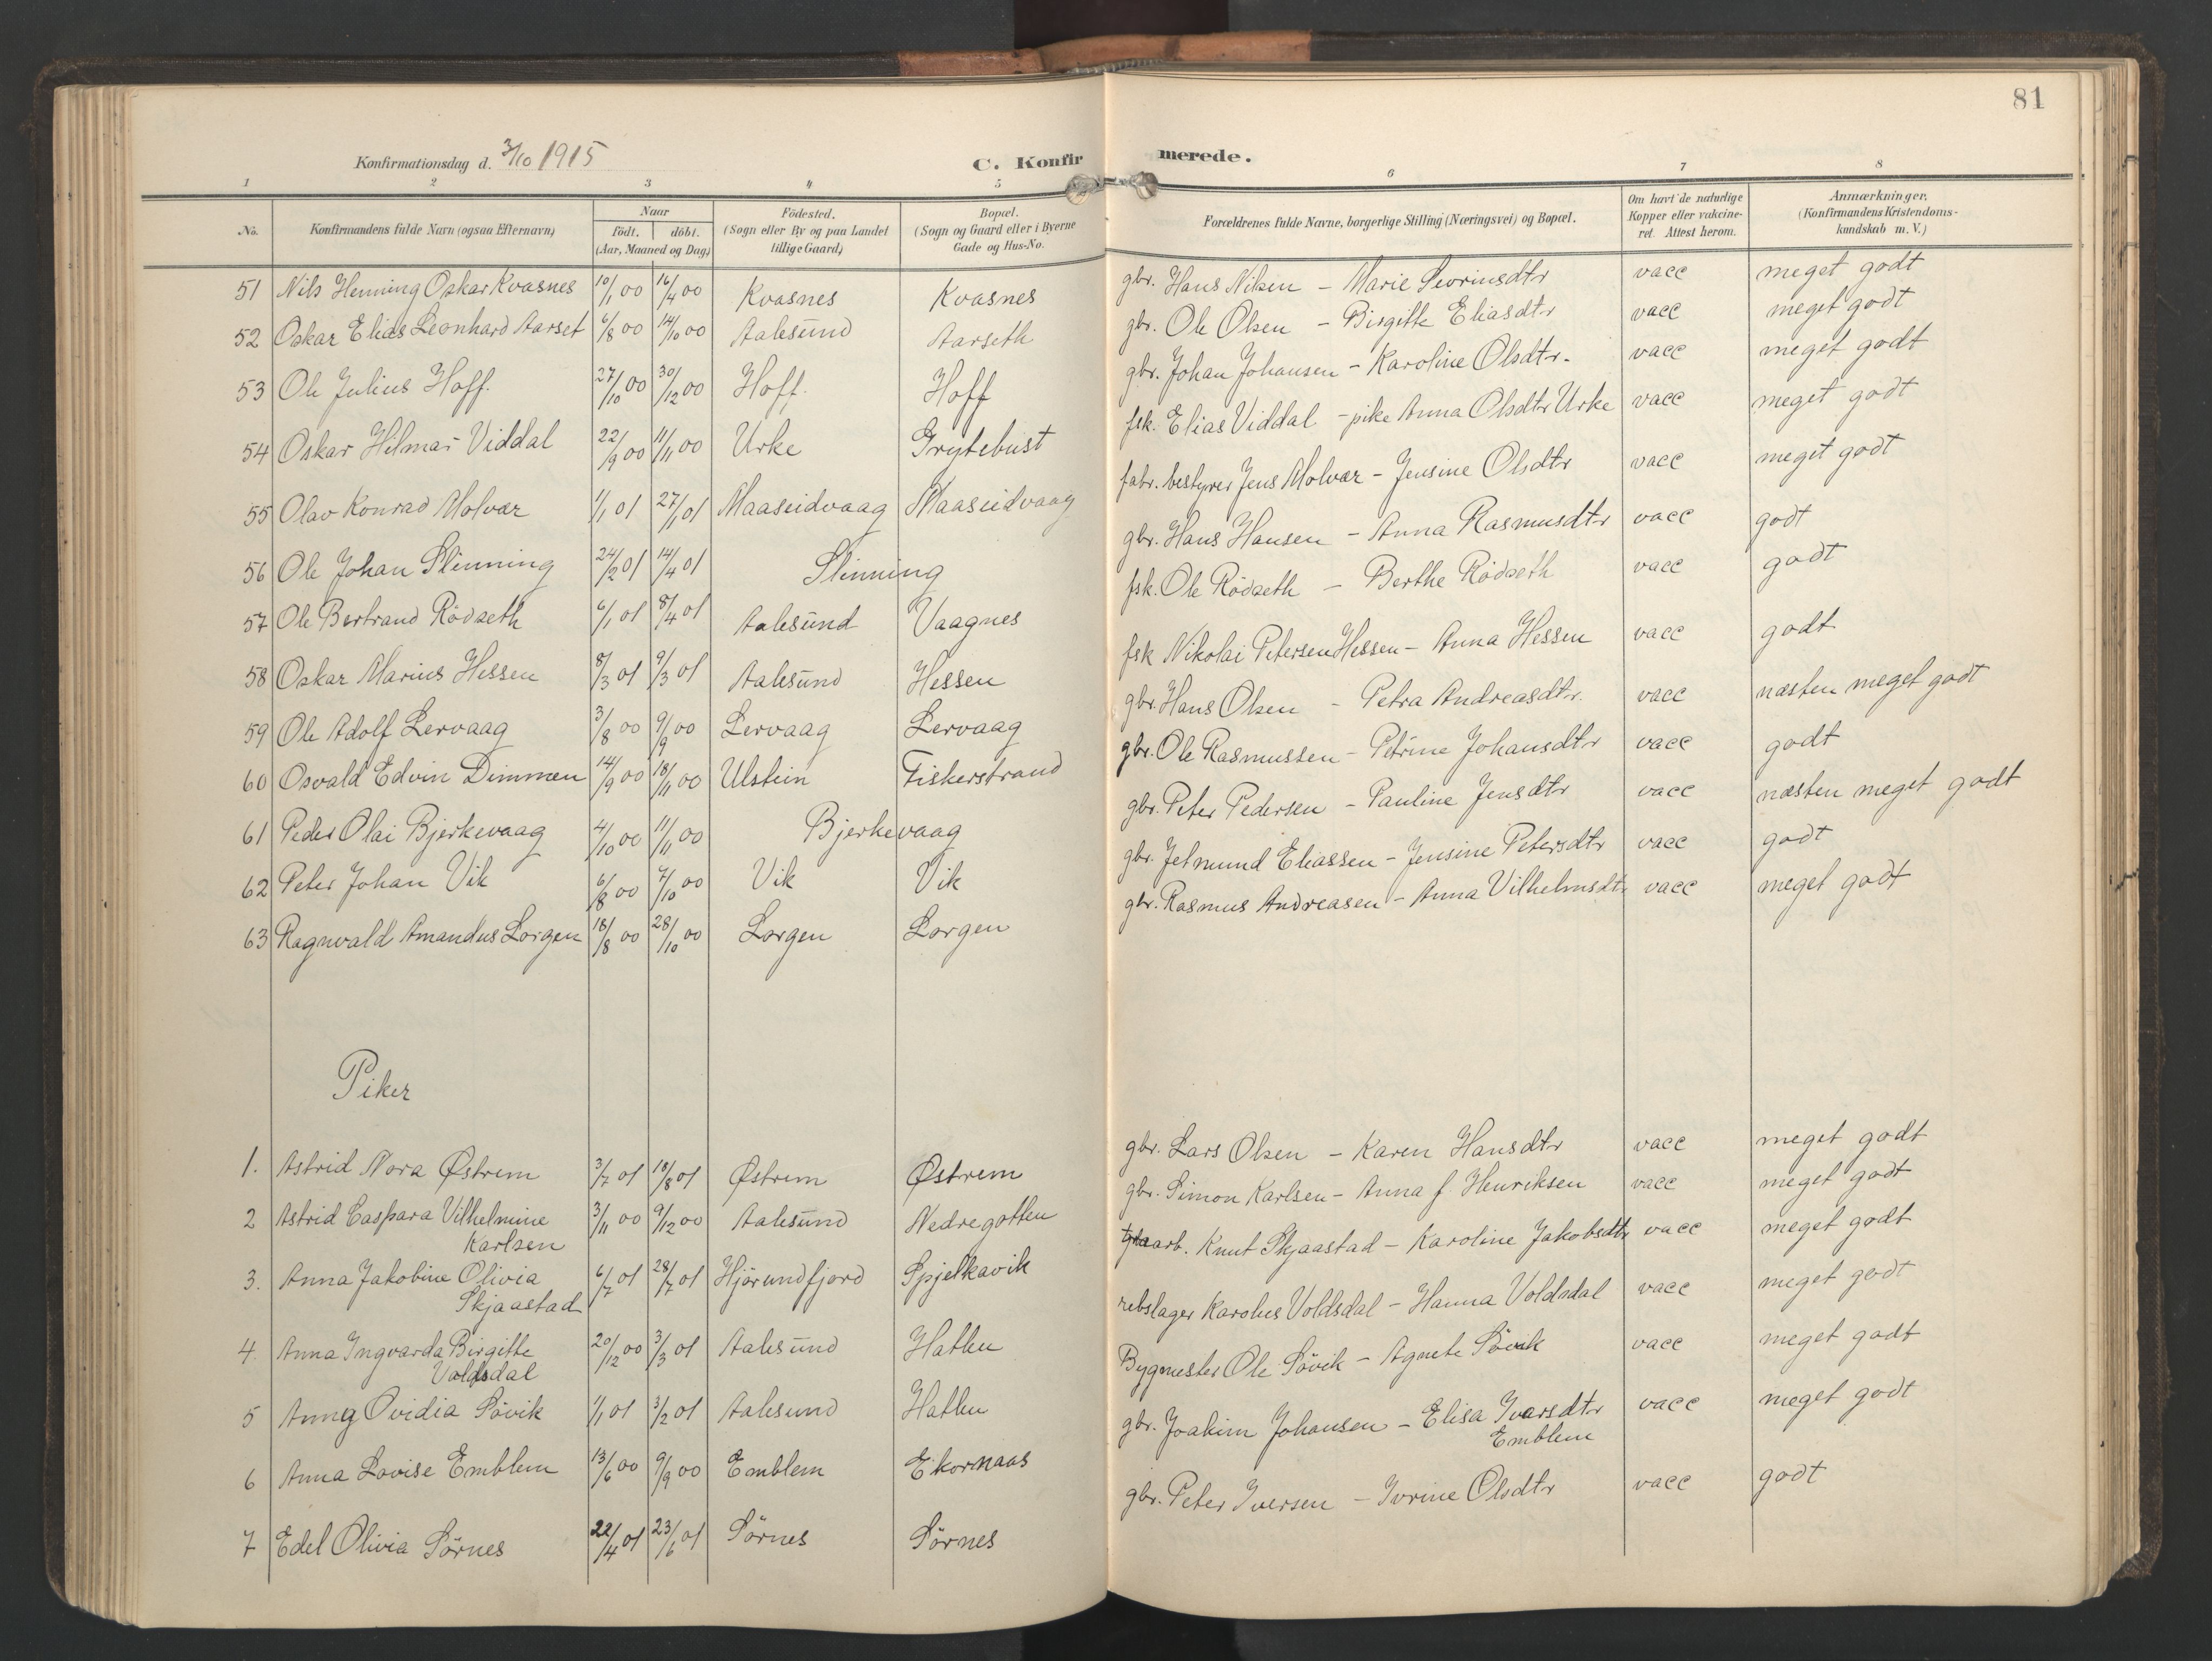 81
Konfirmationsdag d. 3/10 1915
C. Konfirmerede.
1 2 3 4 5 6 7 8
No. Konfirmandens fulde Navn (ogsaa Efternavn) Naar födt. döbt. (Aar, Maaned og Dag) Födested. (Sogn eller By og paa Landet tillige Gaard) Bopæl. (Sogn og Gaard eller i Byerne Gade og Hus-No. Forældrenes fulde Navne, borgerlige Stilling (Næringsvei) og Bopæl. Om havt de naturlige Kopper eller vakcineret. Attest herom. Anmærkninger. (Konfirmandens Kristendomskundskab m. V.)
51 Nils Henning Oskar Kvasnes 10/1 00 16/4 00 Kvasnes Kvasnes gbr. Hans Nilsen - Marie Sevrinsdtr vacc meget godt
52 Oskar Elias Leonhard Aarset 6/8 00 14/10 00 Aalesund Aarseth gbr. Ole Olsen - Birgitte Eliasdtr vacc meget godt
53 Ole Julius Hoff. 27/10 00 30/12 00 Hoff. Hoff gbr. Johan Johansen - Karoline Olsdtr. vacc meget godt
54 Oskar Hilmar Viddal 22/9 00 11/11 00 Urke Grytebust fsk. Elias Viddal - pike Anna Olsdtr Urke vacc meget godt
55 Olav Konrad Molvær 1/1 01 27/1 01 Maaseidvaag Maaseidvaag fabr. bestyrer Jens Molvær - Jensine Olsdtr vacc meget godt
56 Ole Johan Slinning 24/2 01 14/4 01 Slinning gbr. Hans Hansen - Anna Rasmusdtr vacc godt
57 Ole Bertrand Rödseth 6/1 01 8/4 01 Aalesund Vaagnes fsk. Ole Rödseth - Berthe Rödseth vacc godt
58 Oskar Marius Hessen 8/3 01 9/3 01 Aalesund Hessen fsk Nikolai Petersen Hessen - Anna Hessen vacc godt
59 Ole Adolf Lervaag 3/8 00 9/9 00 Lervaag Lervaag gbr. Hans Olsen - Petra Andreasdtr. vacc næsten meget godt
60 Osvald Edvin Dimmen 14/9 00 18/11 00 Ulstein Fiskerstrand gbr. Ole Rasmussen - Petrine Johansdtr vacc godt
61 Peder Olai Bjerkevaag 4/10 00 11/11 00 Bjerkevaag gbr. Peter Pedersen - Pauline Jensdtr vacc næsten meget godt
62 Peter Johan Vik 6/8 00 7/10 00 Vik Vik gbr. Jetmund Eliassen - Jensine Petersdtr vacc godt
63 Ragnvald Amandus Lorgen 18/8 00 28/10 00 Lorgen Lorgen gbr. Rasmus Andreasen - Anna Vilhelmsdtr vacc meget godt
Piker
1. Astrid Nora Østrem 3/7 01 18/8 01 Østrem Østrem gbr. Lars Olsen - Karen Hansdtr vacc meget godt
2 Astrid Caspara Vilhelmine 3/11 00 9/12 00 Aalesund Nedregotten gbr. Simon Karlsen - Anna f. Henriksen vacc meget godt
Karlsen
3. Anna Jakobine Olivia 6/7 01 28/7 01 Hjörundfjord Spjelkavik arb. Knut Skjaastad - Karoline Jakobsdtr vacc meget godt
Skjaastad
4. Anna Ingvarda Birgitte 20/12 00 3/3 01 Aalesund Hatlen rebslager Karolus Voldsdal - Hanna Voldsdal vacc meget godt
Voldsdal
5 Anna Ovidia Sövik 1/1 01 3/2 01 Aalesund Hatlen Bygmester Ole Sövik - Agnete Sövik vacc meget godt
6 Anna Lovise Emblem 13/6 00 9/9 00 Emblem Ekornaas gbr. Joakim Johansen - Elisa Ivarsdtr vacc meget godt
Emblem
7 Edel Olivia Sörnes 22/4 01 23/6 01 Sörnes Sörnes gbr. Peter Iversen - Ivrine Olsdtr vacc godt